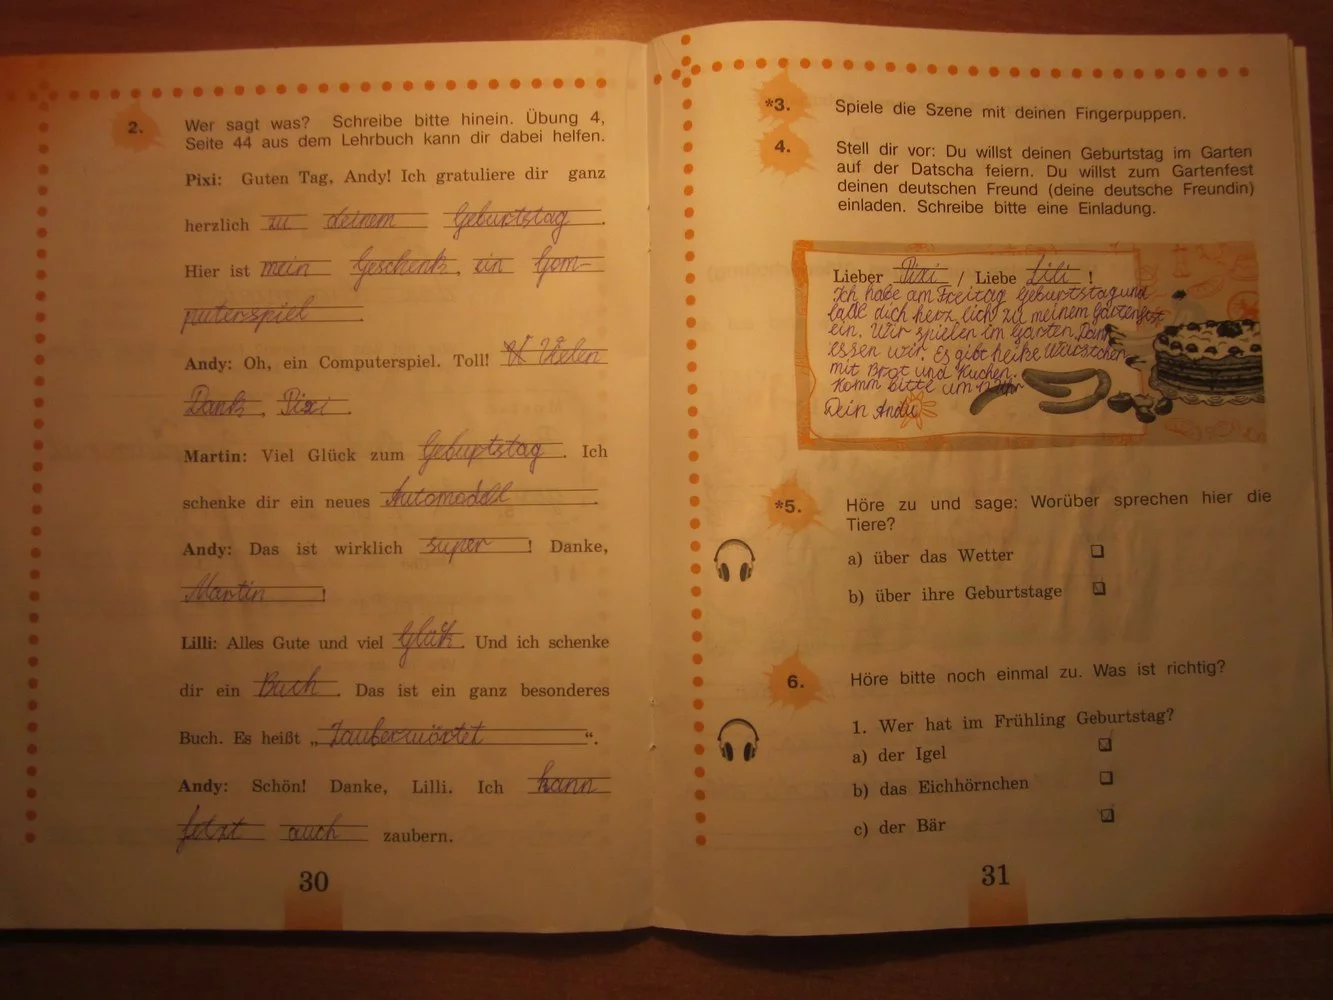 2. Wer sagt was? Schreibe bitte hinein. Übung 4,
Seite 44 aus dem Lehrbuch kann dir dabei helfen.
Pixi: Guten Tag, Andy! Ich gratuliere dir ganz
herzlich zu deinem Geburtstag.
Hier ist mein Geschenk, ein Com-
puterspiel.
Andy: Oh, ein Computerspiel. Toll! Vielen
Dank, Pixi.
Martin: Viel Glück zum Gebuptstag. Ich
schenke dir ein neues Automodell.
Andy: Das ist wirklich super! Danke,
Martin!
Lilli: Alles Gute und viel Glük. Und ich schenke
dir ein Buch. Das ist ein ganz besonderes
Buch. Es heißt „Zauberwörtet“.
Andy: Schön! Danke, Lilli. Ich kann
jetzt auch zaubern.
30
*3. Spiele die Szene mit deinen Fingerpuppen.
4. Stell dir vor: Du willst deinen Geburtstag im Garten
auf der Datscha feiern. Du willst zum Gartenfest
deinen deutschen Freund (deine deutsche Freundin)
einladen. Schreibe bitte eine Einladung.
Lieber Pixi / Liebe Lili!
Ich habe am Freitag Geburtstag und
lade dich herz lich zu meinem Gartenfest
ein. Wir spielen im Garten. Dann
essen wir. Es gibt heiße Würstchen
mit Brot und Kuchen.
Komm bitte um 12 Uhr
Dein Andy
*5. Höre zu und sage: Worüber sprechen hier die
Tiere?
a) über das Wetter
b) über ihre Geburtstage
6. Höre bitte noch einmal zu. Was ist richtig?
1. Wer hat im Frühling Geburtstag?
a) der Igel
b) das Eichhörnchen
c) der Bär
31